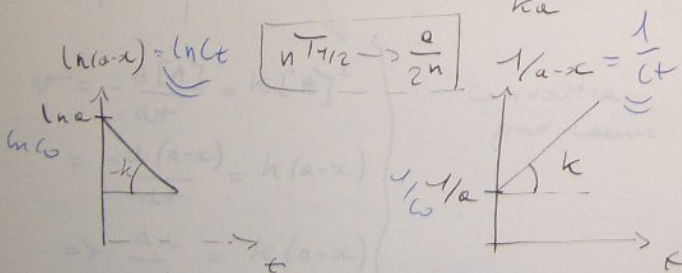 ka
ln(a-x) = ln Ct
n T1/2 → a/2^n
1/a-x = 1/Ct
ln a
ln C0
-k
t
1/C0 1/a
k
t